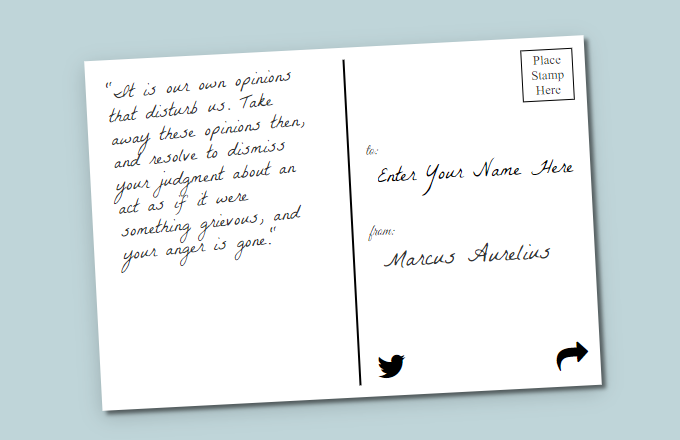 "It is our own opinions
that disturb us. Take
away these opinions then,
and resolve to dismiss
your judgment about an
act as if it were
something grievous, and
your anger is gone."
Place
Stamp
Here
to:
Enter Your Name Here
from:
Marcus Aurelius